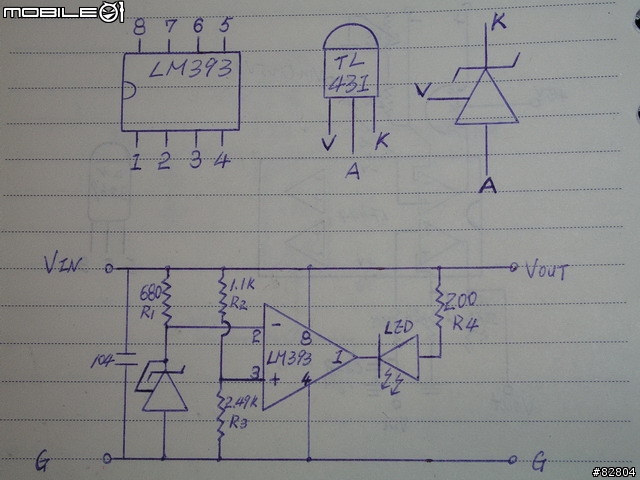 MOBILE01
8 7 6 5
LM393
1 2 3 4
TL
431
V
A
K
K
V
A
VIN
VOUT
680
R1
1.1K
R2
200
R4
LED
104
2
-
8
LM393
1
3
+
4
2.49K
R3
G
G
#82804